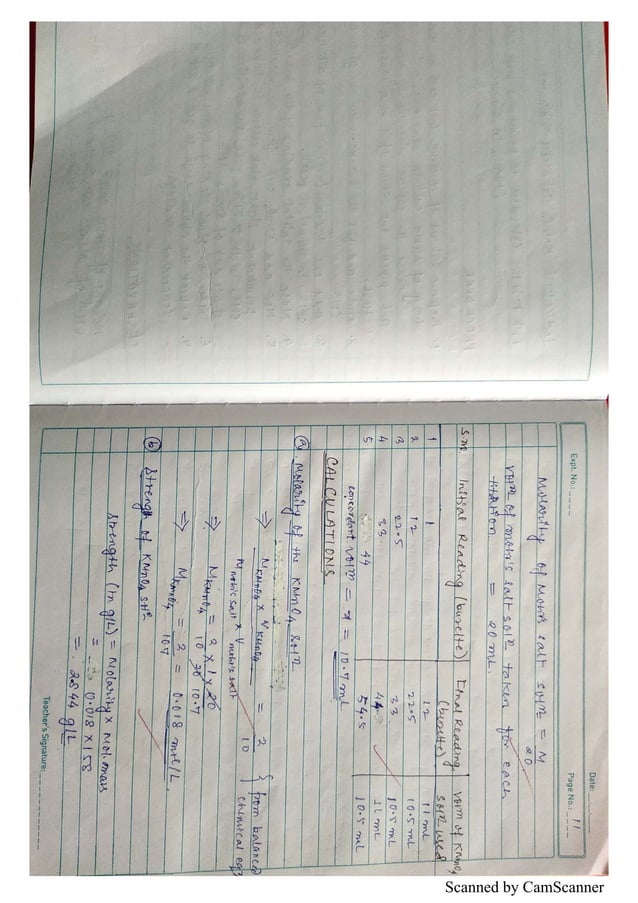 Date: ______
Expt. No.: ____
Page No.: 11
Molarity of Mohr's salt solⁿ = M/20
volm of mohr's salt solⁿ taken for each
titration = 20 mL.
S.no Initial Reading (burette) Final Reading (burette) volm of KMnO4 solⁿ used
1 1 12 11 mL
2 12 22.5 10.5 mL
3 22.5 33 10.5 mL
4 33 44 11 mL
5 44 54.5 10.5 mL
concordant volm = x = 10.7 mL
CALCULATIONS
(a). Molarity of the KMnO4 solⁿ
⇒ MKMnO4 × VKMnO4 / Mmohr's salt × Vmohr's salt = 2/10 } from balanced
chemical eqⁿ
⇒ MKMnO4 = 2 × 1 × 20 / 10 20 10.7
⇒ MKMnO4 = 2/107 = 0.018 mol/L.
(b) Strength of KMnO4 solⁿ
Strength (in g/L) = Molarity × Mol. mass
= 0.018 × 158
= 2.844 g/L
Teacher's Signature: ____________
Scanned by CamScanner